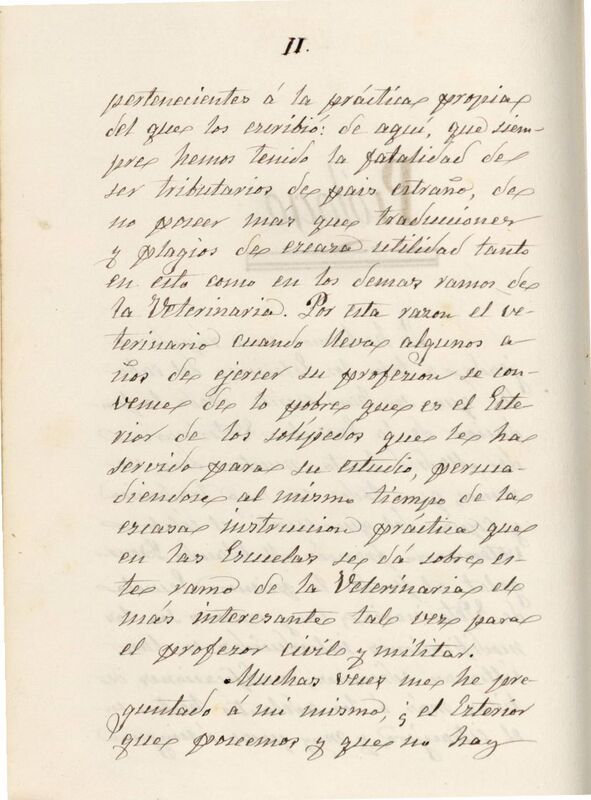 II.
pertenecientes á la práctica propia
del que los escribió: de aquí, que siem-
pre hemos tenido la fatalidad de
ser tributarios de pais estraño, de
no poseer mas que traducciones
y plagios de escasa utilidad tanto
en esto como en los demas ramos de
la Veterinaria. Por esta razon el ve-
terinario cuando lleva algunos a-
ños de ejercer su profesion se con-
vence de lo pobre que es el Este-
rior de los solipedos que le ha
servido para su estudio, persua-
diendose al mismo tiempo de la
escasa instruccion práctica que
en las Escuelas se dá sobre es-
te ramo de la Veterinaria el
más interesante tal vez para
el profesor civil y militar.
Muchas veces me he pre-
guntado á mi mismo, ¿ el Esterior
que poseemos y que no hay